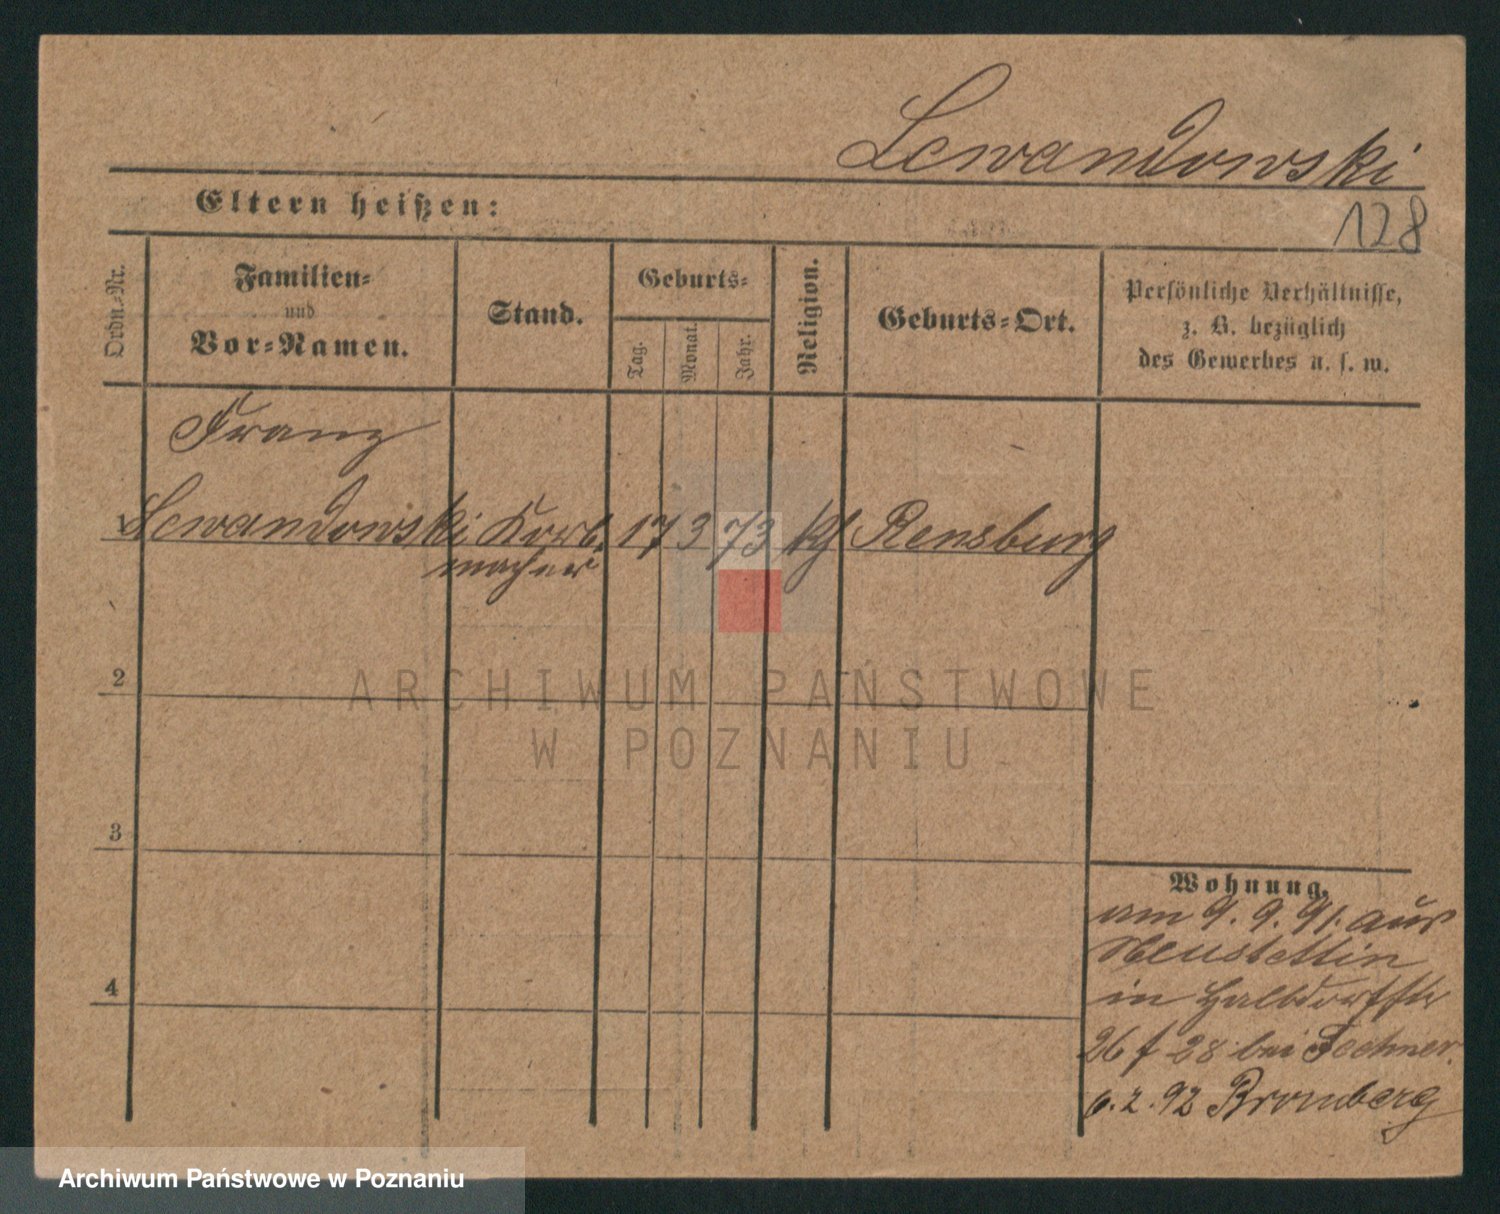 Lewandowski
128
Eltern heißen:
Ordn.-Nr.
Familien-
und
Vor-Namen.
Stand.
Geburts-
Tag.
Monat.
Jahr.
Religion.
Geburts-Ort.
Persönliche Verhältnisse,
z. B. bezüglich
des Gewerbes u. s. w.
Franz
1 Lewandowski Korb- 17 3 73 kf Rensburg
macher
2
3
4
Wohnung.
am 9. 9. 91. aus
Neustettin
in Halbdorfstr
26 f 28 bei
6. 2. 92 Bromberg
ARCHIWUM PAŃSTWOWE
W POZNANIU
Archiwum Państwowe w Poznaniu